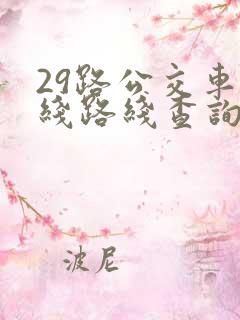 29路公交車
綫路綫查詢
波尼